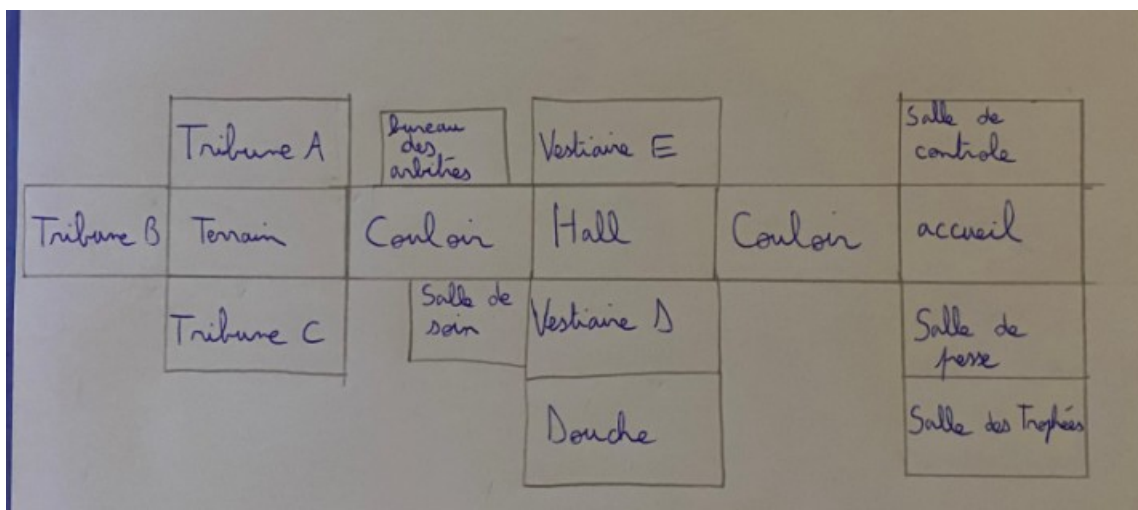 Tribune A
bureau
des
arbitres
Vestiaire E
Salle de
controle
Tribune B
Terrain
Couloir
Hall
Couloir
accueil
Tribune C
Salle de
soin
Vestiaire D
Salle de
presse
Douche
Salle des Trophées